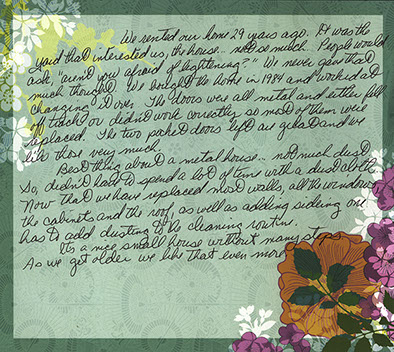 We rented our home 29 years ago. It was the
yard that interested us, the house... not so much. People would
ask, "aren't you afraid of lightening?" We never gave that
much thought. We bought the home in 1984 and worked at
changing it over. The doors were all metal and either fell
off track or didn't work correctly so most of them were
replaced. The two pocket doors left are great and we
like those very much.
Best thing about a metal house... not much dust
So, didn't have to spend a lot of time with a dust cloth.
Now that we have replaced most walls, all the windows
the cabinets and the roof, as well as adding sideing one
has to add dusting to the cleaning routine.
It's a nice small house without many steps
As we get older we like that even more